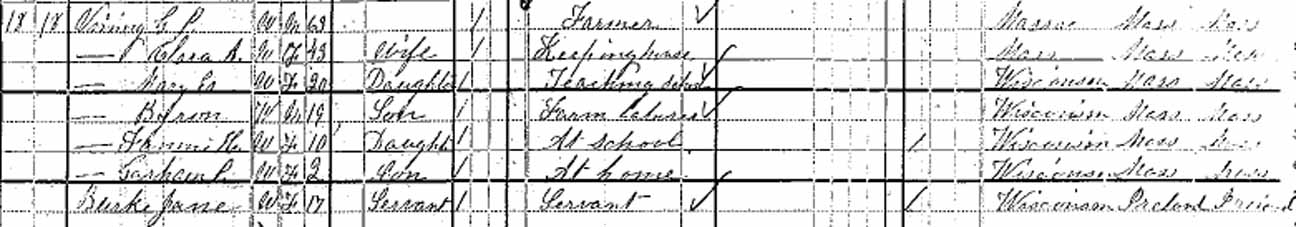 18 18 Vining G P. W M 63 / Farmer Massac Mass Mass
— Clara A. W F 43 Wife / Keeping house Mass Mass Mass
— Mary W F 20 Daughter / Teaching school Wisconsin Mass Mass
— Byron W M 19 Son / Farm laborer Wisconsin Mass Mass
— Fannie H. W F 10 Daught / At school / Wisconsin Mass Mass
— W F 2 Son At home Wisconsin Mass Mass
Burke Jane W F 17 Servant / Servant / Wisconsin Ireland Ireland